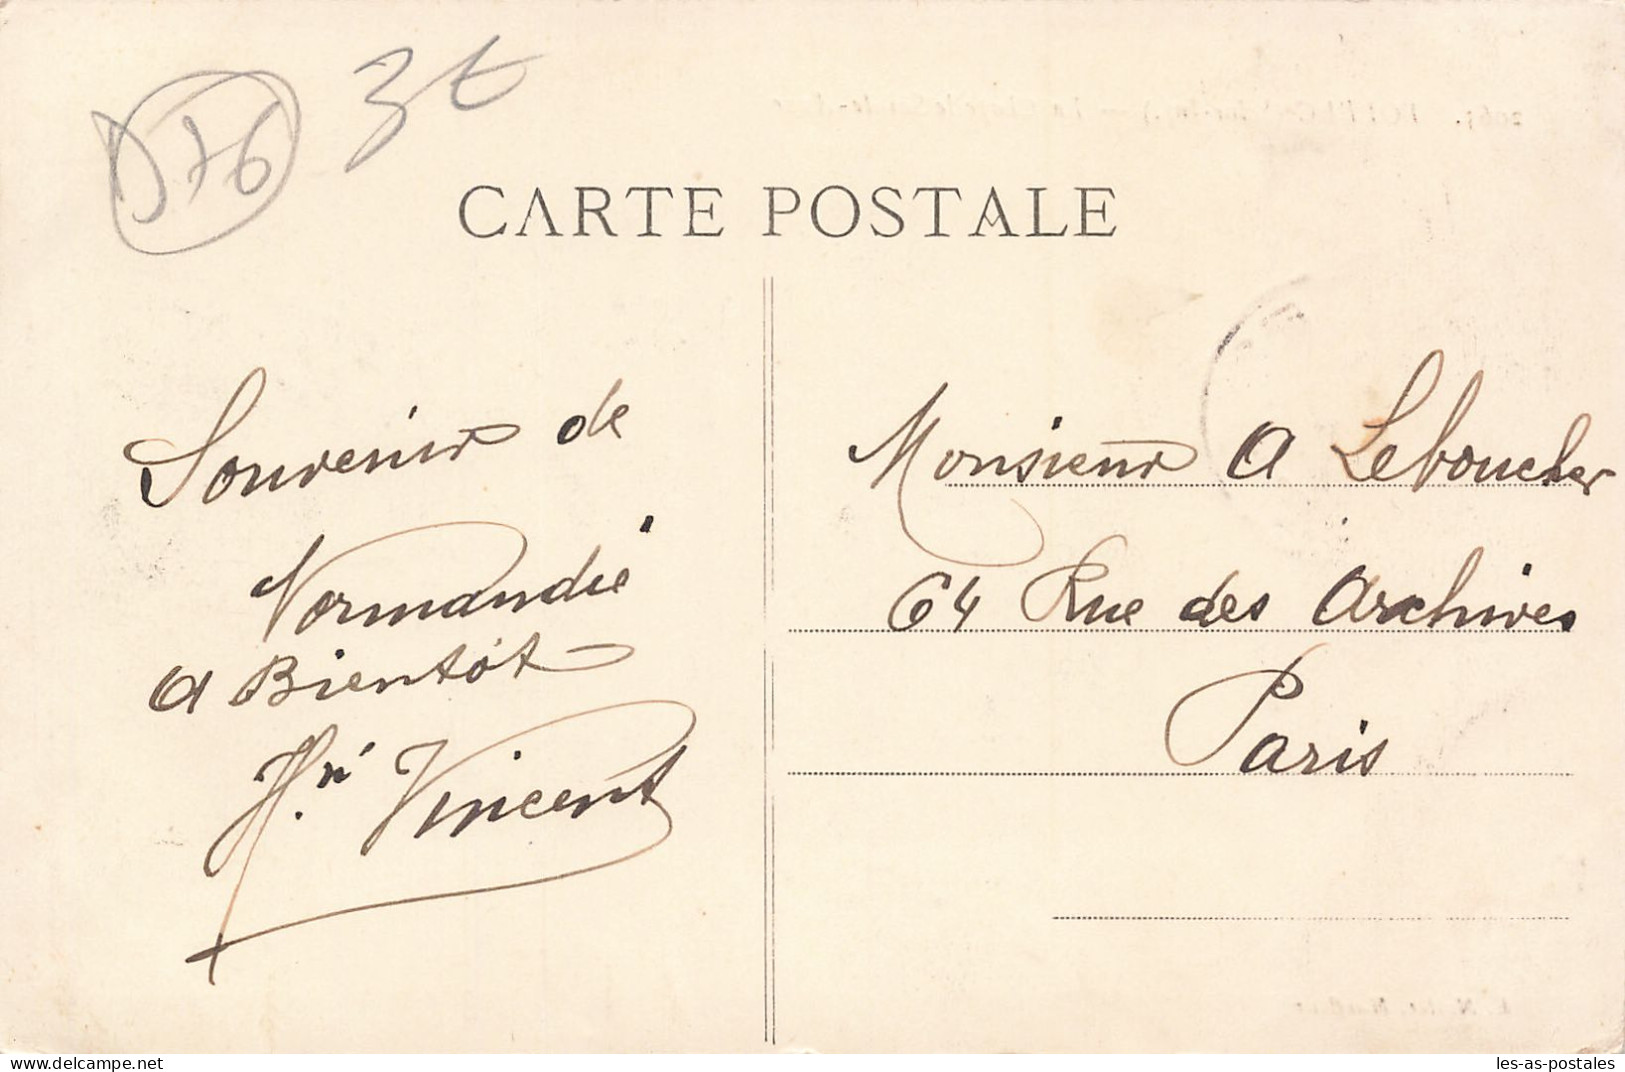 D76 3t
CARTE POSTALE
Souvenir de
Normandie
A Bientôt
Hri Vincent
Monsieur A Leboucher
64 Rue des Archives
Paris
delcampe.net
les-as-postales